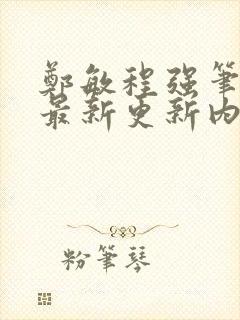 鄭敏程强筆
最新更新内
粉筆琴